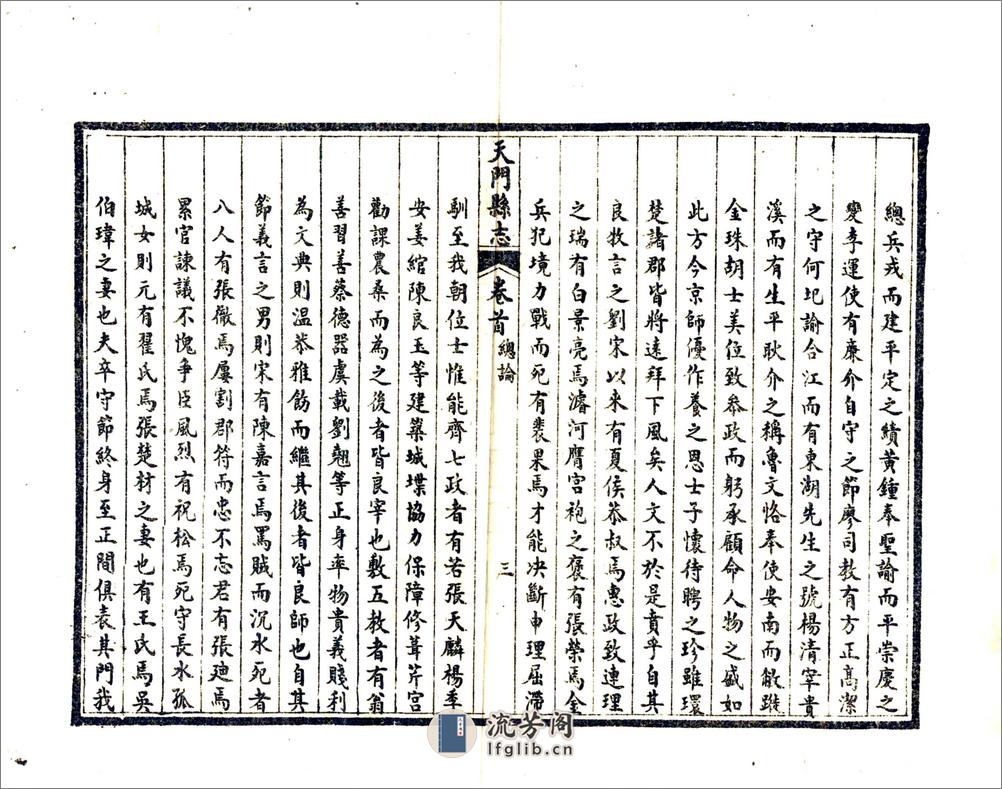 總兵戎而建平定之績黃鍾奉聖諭而平崇慶之
變李運使有廉介自守之節廖司教有方正高潔
之守何圯諭合江而有東湖先生之號楊清宰貴
溪而有生平耿介之稱魯文恪奉使安南而
金珠胡士美位致叅政而躬承顧命人物之盛如
此方今京師優作養之恩士子懷待聘之珍雖環
楚諸郡皆將遠拜下風矣人文不於是賁乎自其
良牧言之劉宋以來有夏侯恭叔焉惠政致連理
之瑞有白景亮焉濬河膺宮袍之褒有張榮焉金
兵犯境力戰而死有裴果焉才能決斷申理屈滯
天門縣志 卷首 總論 三
馴至我朝位士惟能齊七政者有若張天麟楊季
安姜綰陳良玉等建築城堞協力保障修葺芹宮
勸課農桑而為之後者皆良宰也敷五教者有翁
善習善蔡德器虞載劉翹等正身率物貴義賤利
為文典則溫恭雅飭而繼其後者皆良師也自其
節義言之男則宋有陳嘉言焉罵賊而沉水死者
八人有張徹焉屢割郡符而忠不忘君有張廸焉
累官諫議不愧爭臣風烈有祝松焉死守長水孤
城女則元有翟氏焉張楚材之妻也有王氏焉吳
伯瑋之妻也夫卒守節終身至正間俱表其門我
流芳阁
lfglib.cn